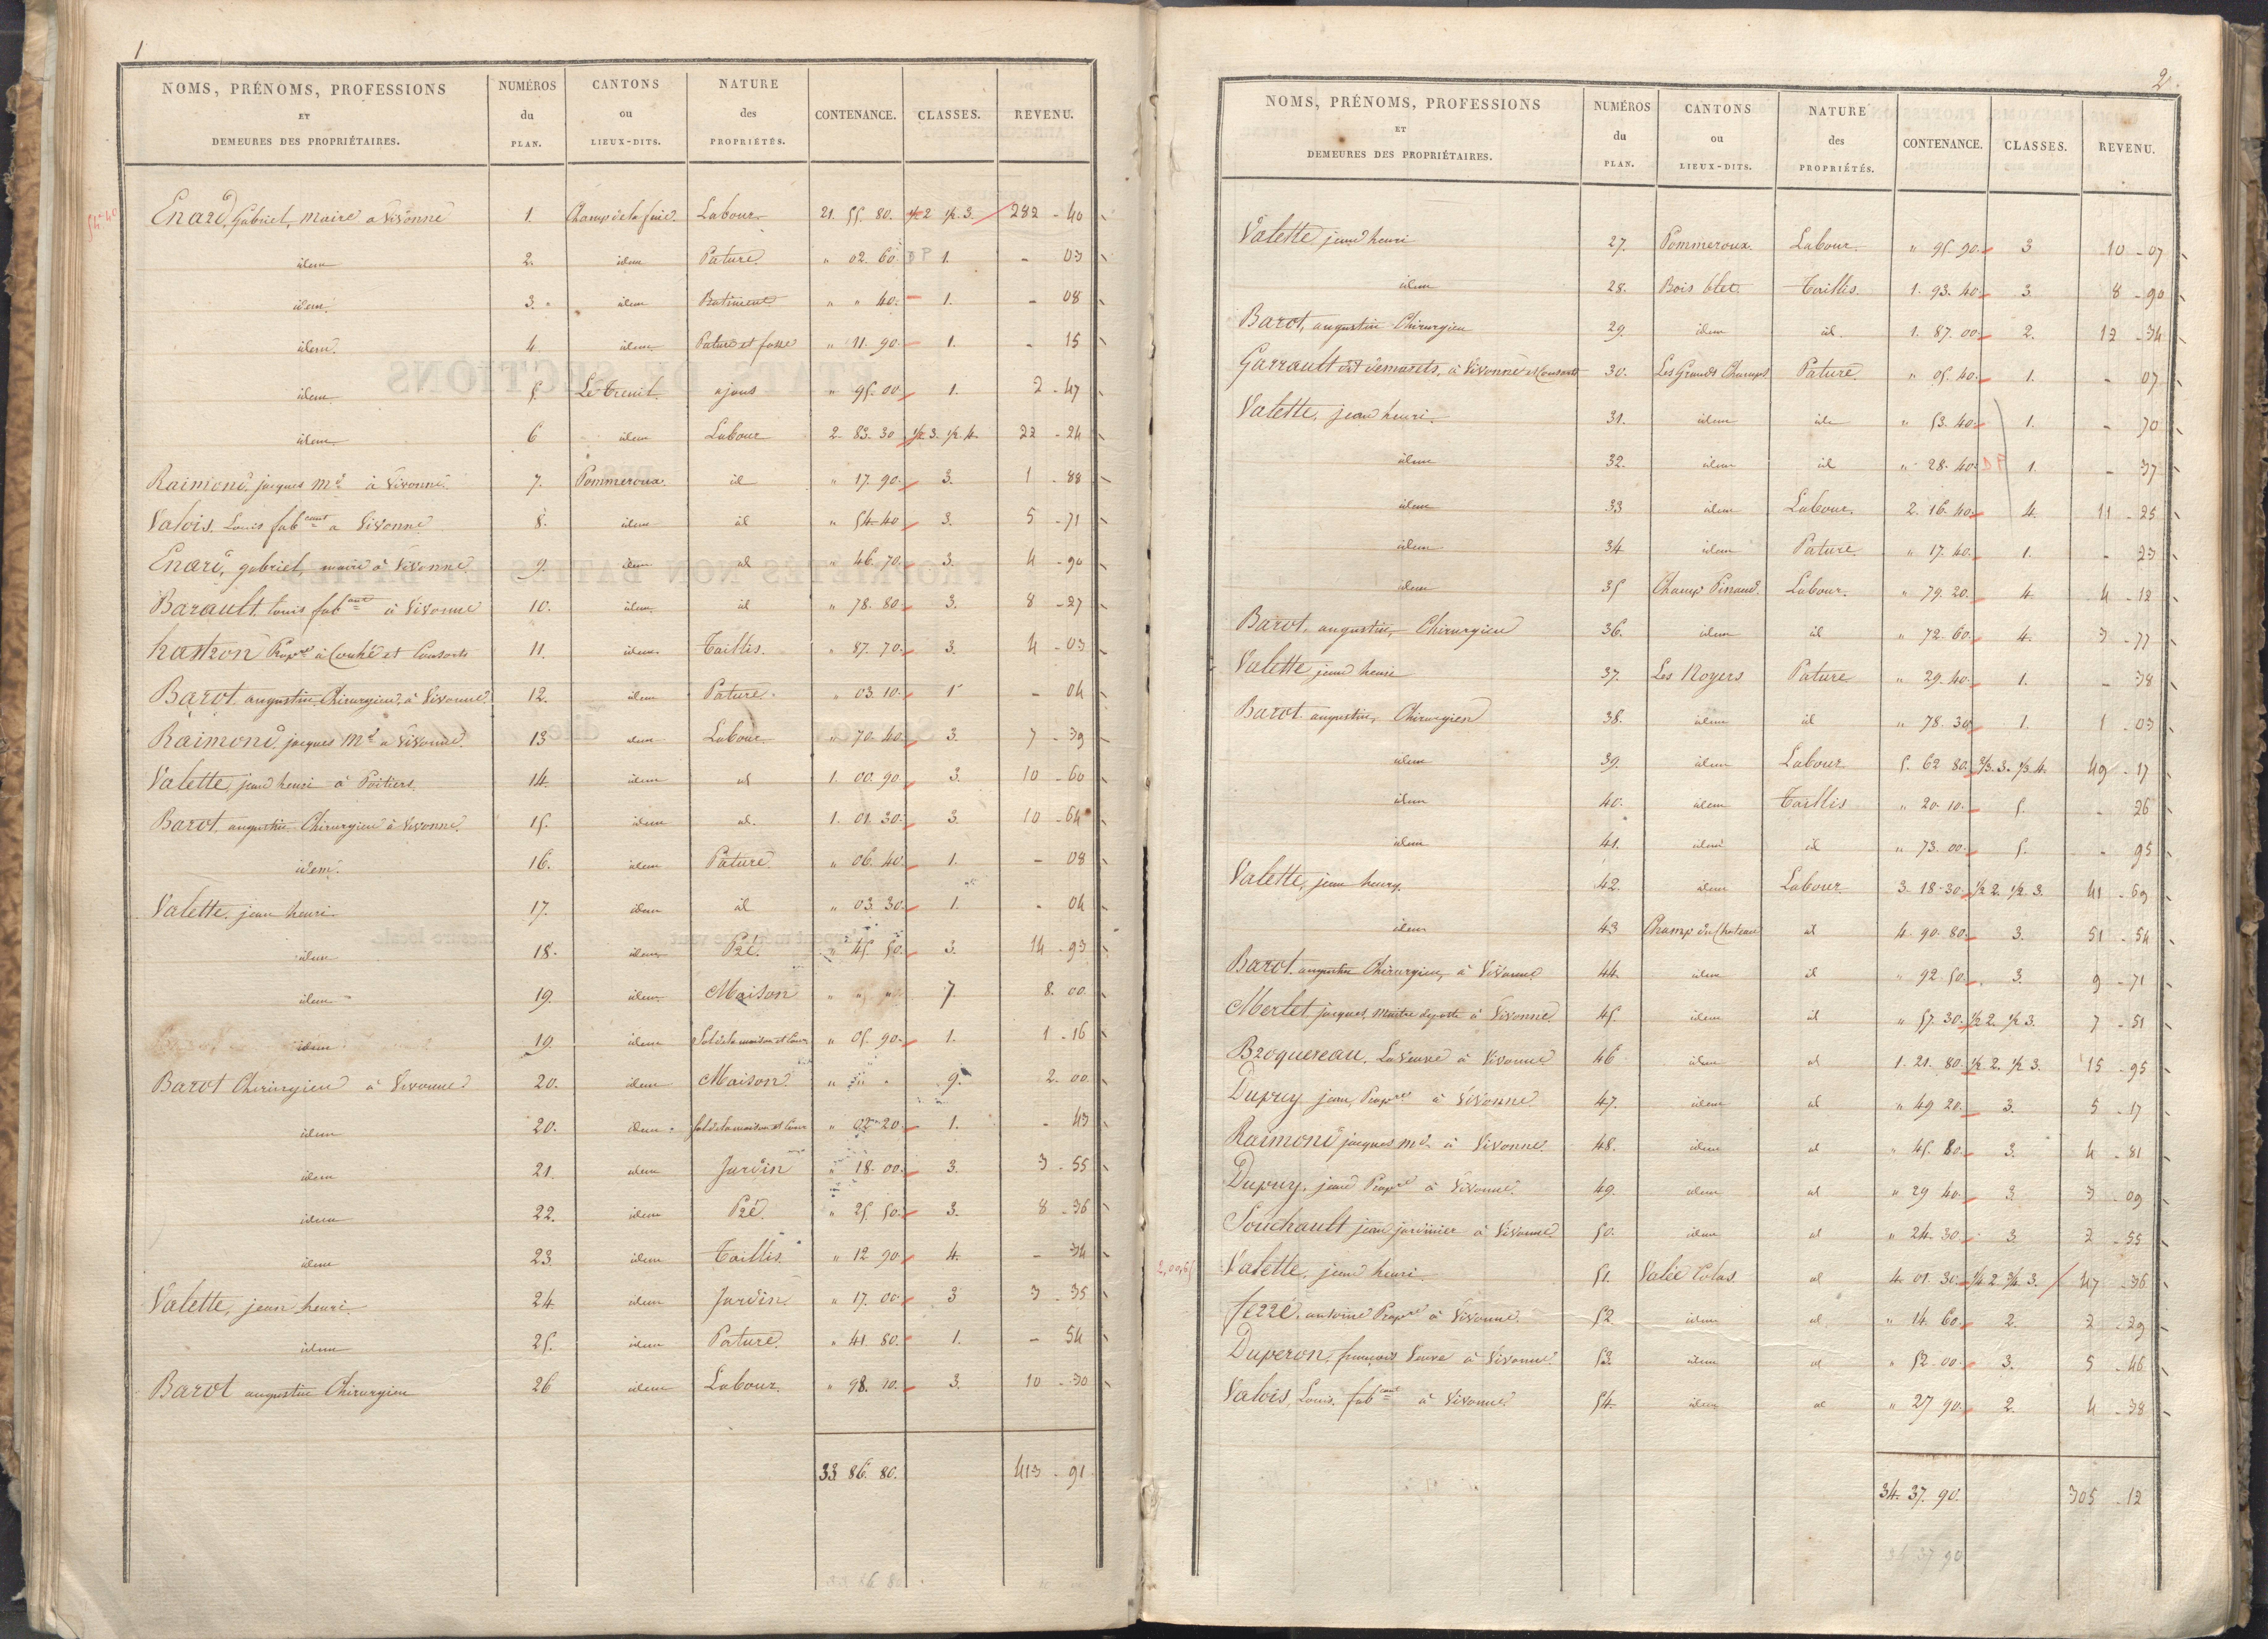 1
NOMS, PRÉNOMS, PROFESSIONS ET DEMEURES DES PROPRIÉTAIRES. NUMÉROS du PLAN. CANTONS ou LIEUX-DITS. NATURE des PROPRIÉTÉS. CONTENANCE. CLASSES. REVENU.
Enard, Gabriel, maire à Vivonne 1. Labour 21. 55. 80. 1/2 2 1/2. 3. 282 - 40
idem 2. idem Pature " 02. 60 1. - 03
idem 3. idem Batiment " " 40. 1. - 08
idem 4. idem Pature et fosse " 11. 90. 1. - 15
idem 5. Le Treuil ajons " 95. 00 1. 2 - 47
idem 6 idem Labour 2. 83. 30 1/2. 3. 1/2. 4. 22 - 24
Raimond, jacques Md à Vivonne 7. Pommeroux id " 17. 90. 3. 1 - 88
Valois, Louis fabcant à Vivonne 8. idem id " 54. 40 3. 5 - 71
Enard, gabriel, maire à Vivonne 9. idem id " 46. 70. 3. 4 - 90
Barault, louis fabcant à Vivonne 10. idem id " 78. 80. 3. 8 - 27
Propre à Couhé et Consorts 11. idem Taillis. " 87. 70. 3. 4 - 03
Barot, augustin Chirurgien, à Vivonne 12. idem Pature " 03. 10. 1 - 04
Raimond, jacques Md à Vivonne 13 idem Labour " 70. 40. 3. 7 - 39
Valette, jean henri à Poitiers. 14. idem id 1. 00. 90 3. 10 - 60
Barot, augustin Chirurgien à Vivonne 15. idem id. 1. 01. 30. 3. 10 - 64
idem. 16. idem Pature " 06. 40. 1. - 08
Valette, jean henri 17. idem id " 03. 30. 1. - 04
idem 18. idem Pré. " 45. 50. 3. 14 - 93
idem 19. idem Maison " " " 7. 8. 00.
idem 19. idem Sol de la maison et Cour " 05. 90. 1. 1 - 16
Barot Chirurgien à Vivonne 20. idem Maison " " " 9. 2. 00
idem 20. idem Sol de la maison et Cour " 02. 20. 1. - 43
idem 21. idem Jardin " 18. 00. 3. 3 - 55
idem 22. idem Pré. " 25. 50. 3. 8 - 36
idem 23. idem Taillis " 12 90. 4. - 34
Valette, jean henri 24 idem Jardin. " 17. 00. 3 3 - 35
idem 25. idem Pature. " 41 80. 1. - 54
Barot augustin Chirurgien 26 idem Labour. " 98. 10. 3. 10 - 30
33 86. 80. 413 - 91
2.
NOMS, PRÉNOMS, PROFESSIONS ET DEMEURES DES PROPRIÉTAIRES. NUMÉROS du PLAN. CANTONS ou LIEUX-DITS. NATURE des PROPRIÉTÉS. CONTENANCE. CLASSES. REVENU.
Valette, jean henri 27. Pommeroux. Labour. " 95. 90. 3 10 - 07
idem 28. Bois blet. Taillis. 1. 93. 40. 3. 8 - 90
Barot, augustin Chirurgien 29. idem id. 1. 87. 00. 2. 12 - 34
Garrault dit demarets, à Vivonne et Consorts 30. Les Grands Champs Pature. " 05. 40. 1. - 07
Valette, jean henri. 31. idem id " 53. 40. 1. - 70
idem 32. idem id " 28. 40. 1. - 37
idem 33 idem Labour. 2. 16. 40. 4. 11 - 25
idem 34 idem Pature " 17. 40. 1. - 23
idem 35 Champ Pinaud. Labour. " 79. 20. 4. 4 - 12
Barot, augustin, Chirurgien 36. idem id " 72. 60. 4. 3 - 77
Valette, jean henri 37. Les Noyers Pature " 29. 40. 1. - 38
Barot augustin, Chirurgien 38. idem id " 78. 30. 1. 1 - 03
idem 39. idem Labour 5. 62. 80. 2/3. 3. 1/3 4. 49 - 17
idem 40. idem Taillis " 20. 10. 5. - 26
idem 41. idem id " 73. 00. 5. - 95
Valette, jean henry. 42. idem Labour 3. 18. 30. 1/2 2. 1/2 3. 41 - 69
idem 43 Champ du Chateau id 4. 90. 80. 3. 51 - 54
Barot augustin Chirurgien, à Vivonne 44. idem id " 92. 50. 3. 9 - 71
Merlet jacques, maitre de poste à Vivonne. 45. idem id " 57. 30. 1/2 2. 1/2 3. 7 - 51
Broquereau, La veuve à Vivonne 46 idem id 1. 21. 80. 1/2 2. 1/2 3. 15 - 95
Dupuy jean, Propre à Vivonne. 47. idem id " 49 20. 3. 5 - 17
Raimond jacques md à Vivonne. 48. idem id " 45. 80. 3. 4 - 81
Dupuy, jean Propre à Vivonne. 49. idem id " 29 40. 3. 3 - 09
Souchault jean jardinier à Vivonne 50. idem id " 24. 30. 3. 2 - 55
Valette, jean henri. 51. Valée Colas id 4. 01. 30. 1/4 2 3/4 3. 47 - 36
antoine Propre à Vivonne. 52 idem id. " 14. 60. 2. 2 - 29
Duperon, françois Veuve à Vivonne. 53. idem id " 52. 00. 3. 5 - 46
Valois, Louis, fabcant à Vivonne. 54. idem id " 27 90. 2. 4 - 38
34. 37. 90. 305 - 12
34 37 90